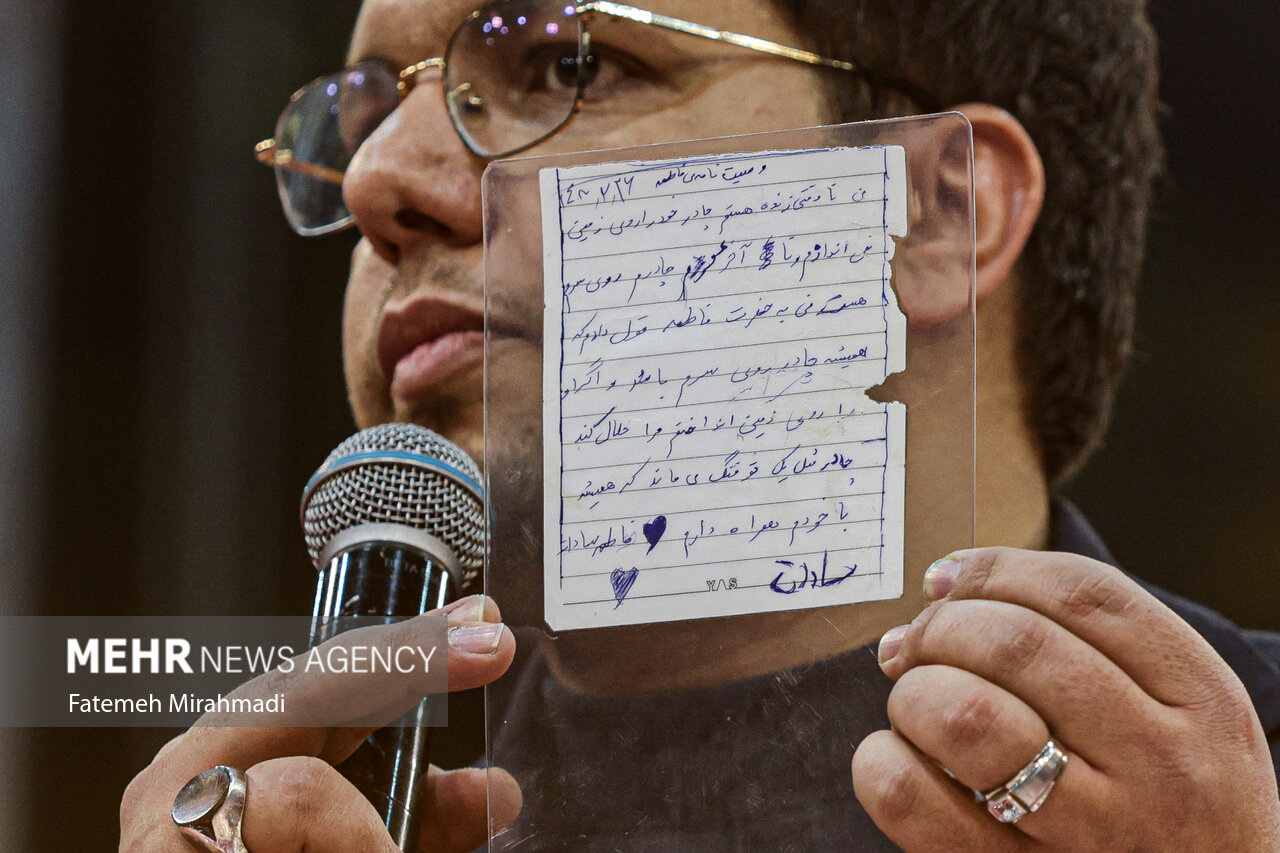 وصیت نامه‌ی فاطمه
من تا وقتی زنده هستم چادر خود را روی زمین
نمی اندازم و تا آخر چادرم روی سرم
هست من به حضرت فاطمه قول دادم که
همیشه چادر روی سرم باشد و اگر او
را روی زمین انداختم مرا حلال کند
چادر مثل یک تو تفنگ می ماند که همیشه
با خودم همراه دارم فاطمه سادات
سادات
MEHR NEWS AGENCY
Fatemeh Mirahmadi